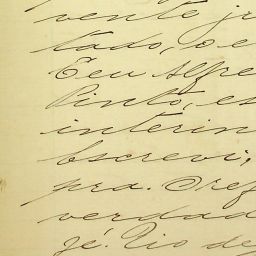 vente ju
tado, o e
E eu Alfre
Pinto, es
interin
Escrevi,
pra. O ref
verdad
fé. Rio de